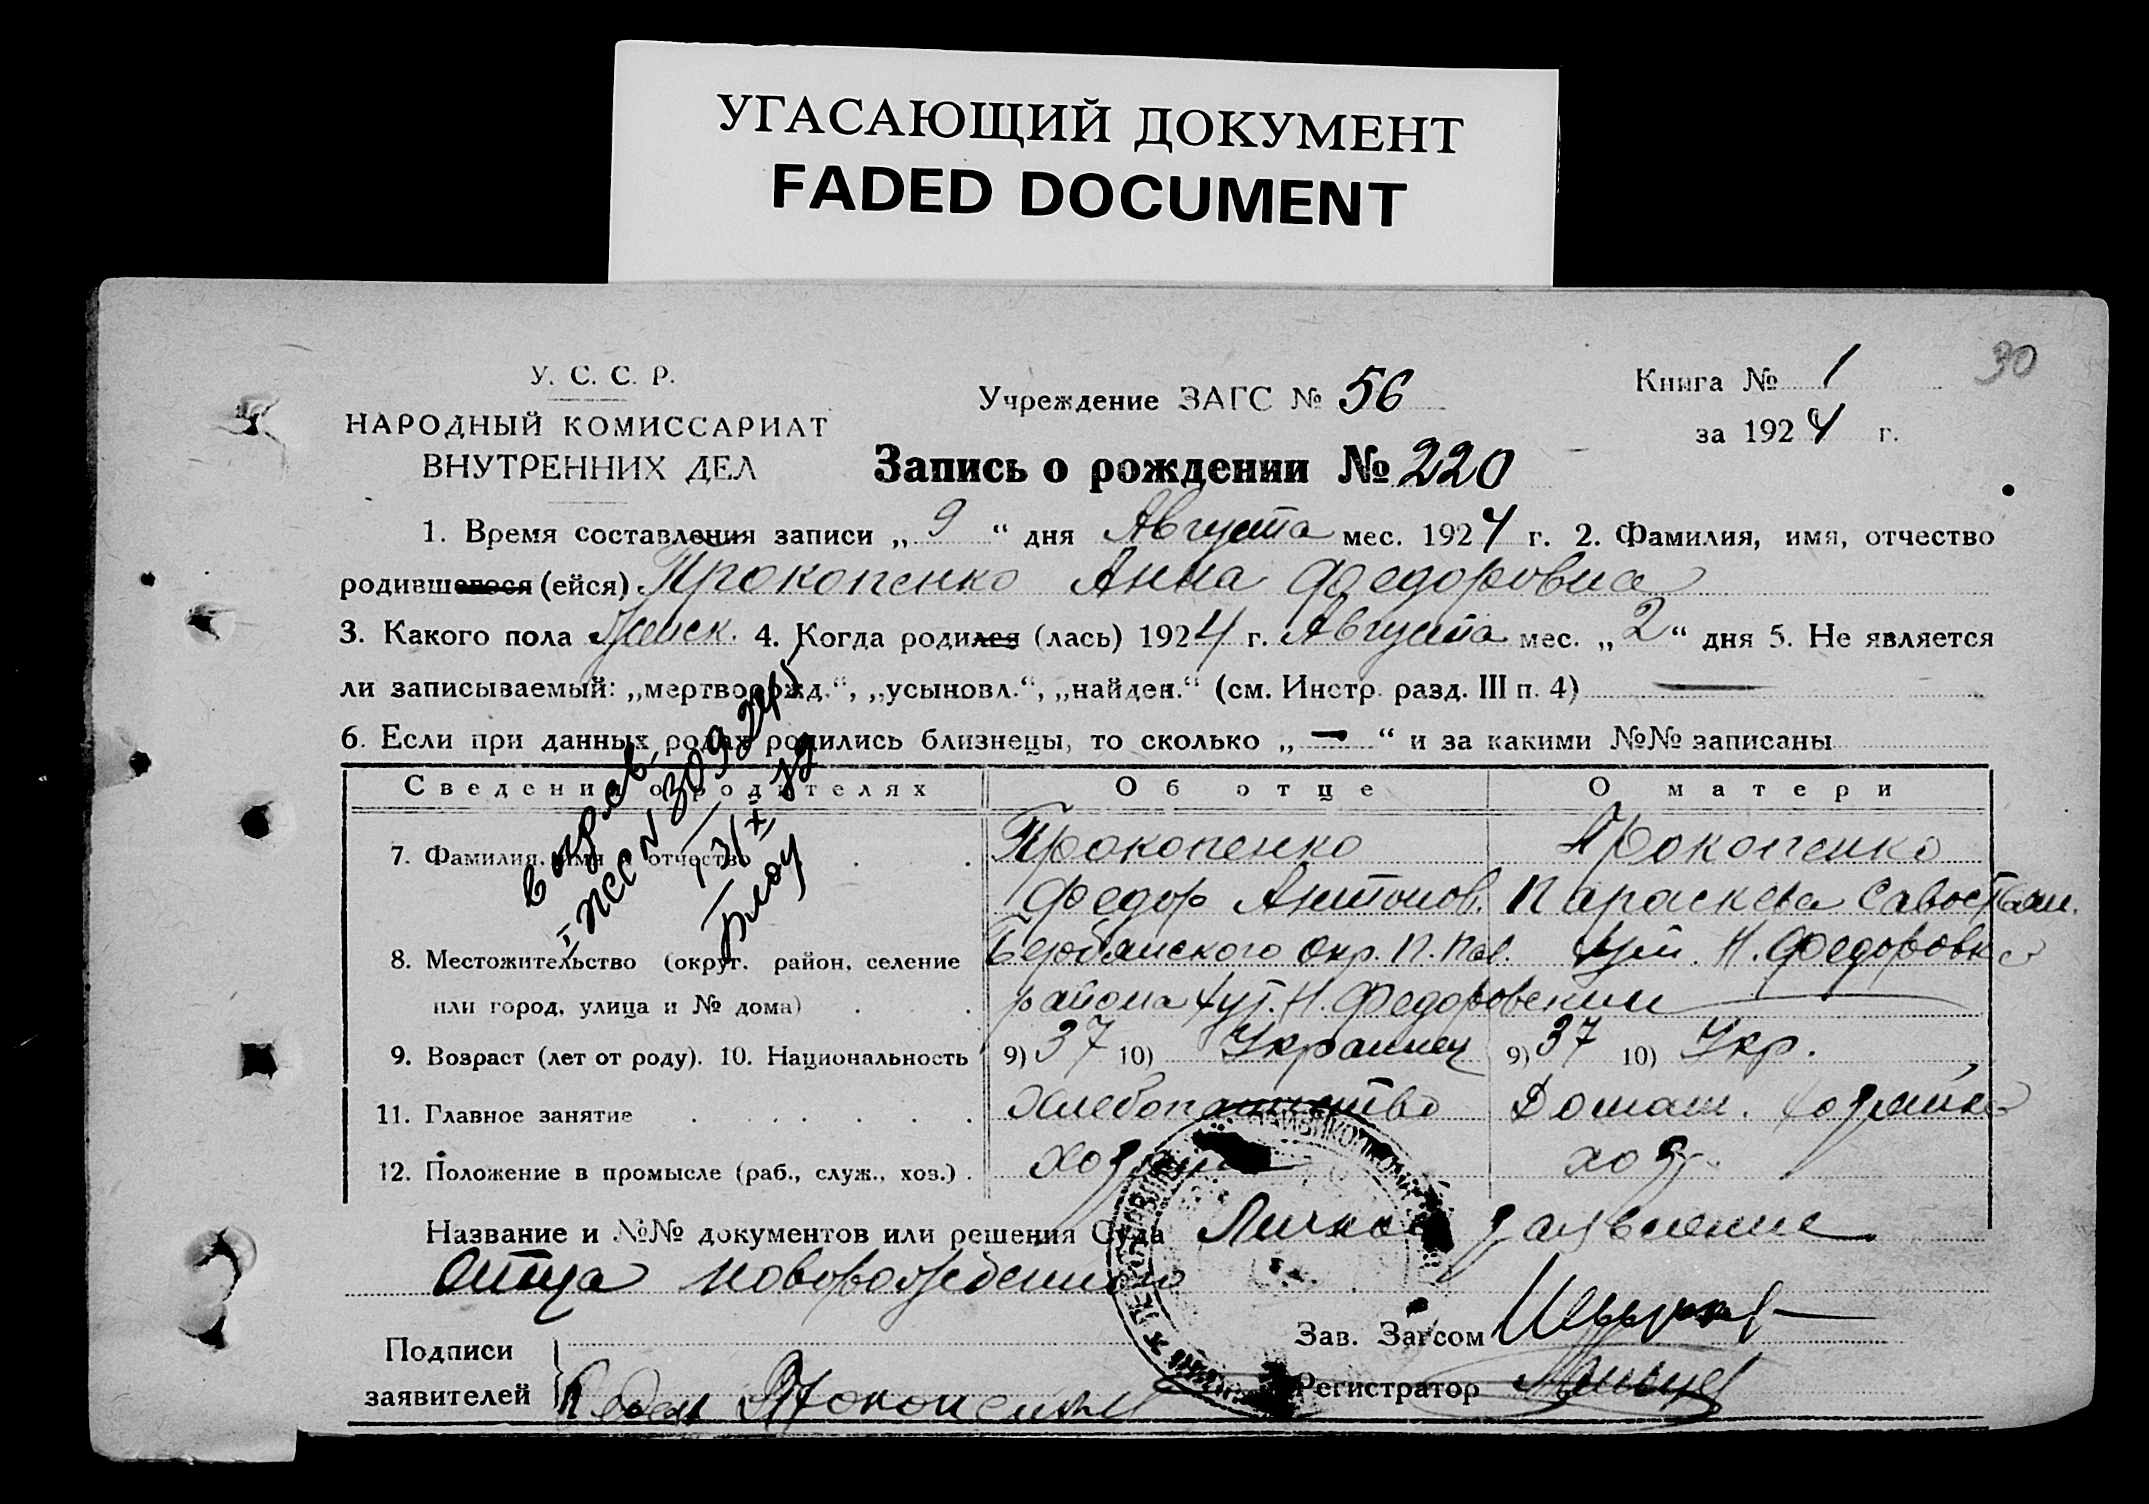 УГАСАЮЩИЙ ДОКУМЕНТ
FADED DOCUMENT
30
У. С. С. Р.
НАРОДНЫЙ КОМИССАРИАТ
ВНУТРЕННИХ ДЕЛ
Учреждение ЗАГС № 56
Книга № 1
за 1924 г.
Запись о рождении № 220
1. Время составления записи „ 9 “ дня Августа мес. 1924 г. 2. Фамилия, имя, отчество
родившегося (ейся) Прокопенко Анна Федоровна
3. Какого пола Женск. 4. Когда родился (лась) 1924 г. Августа мес. „ 2 “ дня 5. Не является
ли записываемый: „мертворожд.“, „усыновл.“, „найден.“ (см. Инстр. разд. III п. 4) —
6. Если при данных родах родились близнецы, то сколько „ — “ и за какими №№ записаны
Сведения о родителях Об отце О матери
7. Фамилия, имя и отчество Прокопенко Прокопенко
Федор Антонов. Параскева Савостьян.
8. Местожительство (округ, район, селение Бердянского окр. П. Пол. хут. Н. Федоровка
или город, улица и № дома) района хут. Н. Федоровский
9. Возраст (лет от роду). 10. Национальность 9) 37 10) Украинец 9) 37 10) Укр.
11. Главное занятие Хлебопашество Домаш. хозяйка
12. Положение в промысле (раб., служ., хоз.) хозяин хоз.
Название и №№ документов или решения Суда Личное заявление
отца новорожденного
Подписи
заявителей
Прокопенко
Зав. Загсом
Регистратор